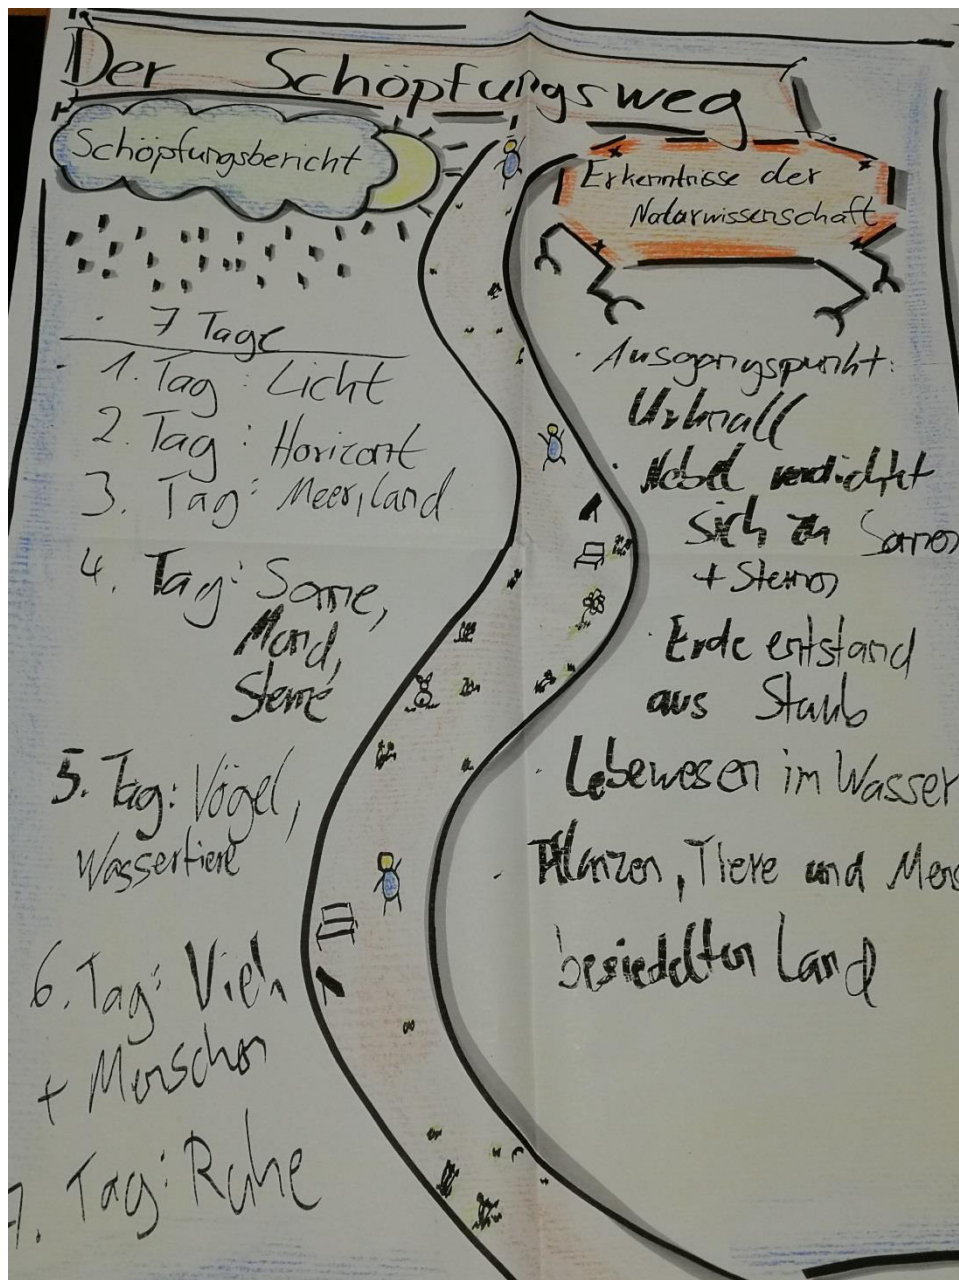 Der Schöpfungsweg
Schöpfungsbericht
· 7 Tage
· 1. Tag: Licht
2. Tag: Horizont
3. Tag: Meer, Land
4. Tag: Sonne,
Mond,
Sterne
5. Tag: Vögel,
Wassertiere
6. Tag: Vieh
+ Menschen
7. Tag: Ruhe
Erkenntnisse der
Naturwissenschaft
· Ausgangspunkt:
Urknall
· Nebel verdichtet
sich zu Sonnen
+ Sternen
· Erde entstand
aus Staub
· Lebewesen im Wasser
· Pflanzen, Tiere und Mens
besiedelten Land